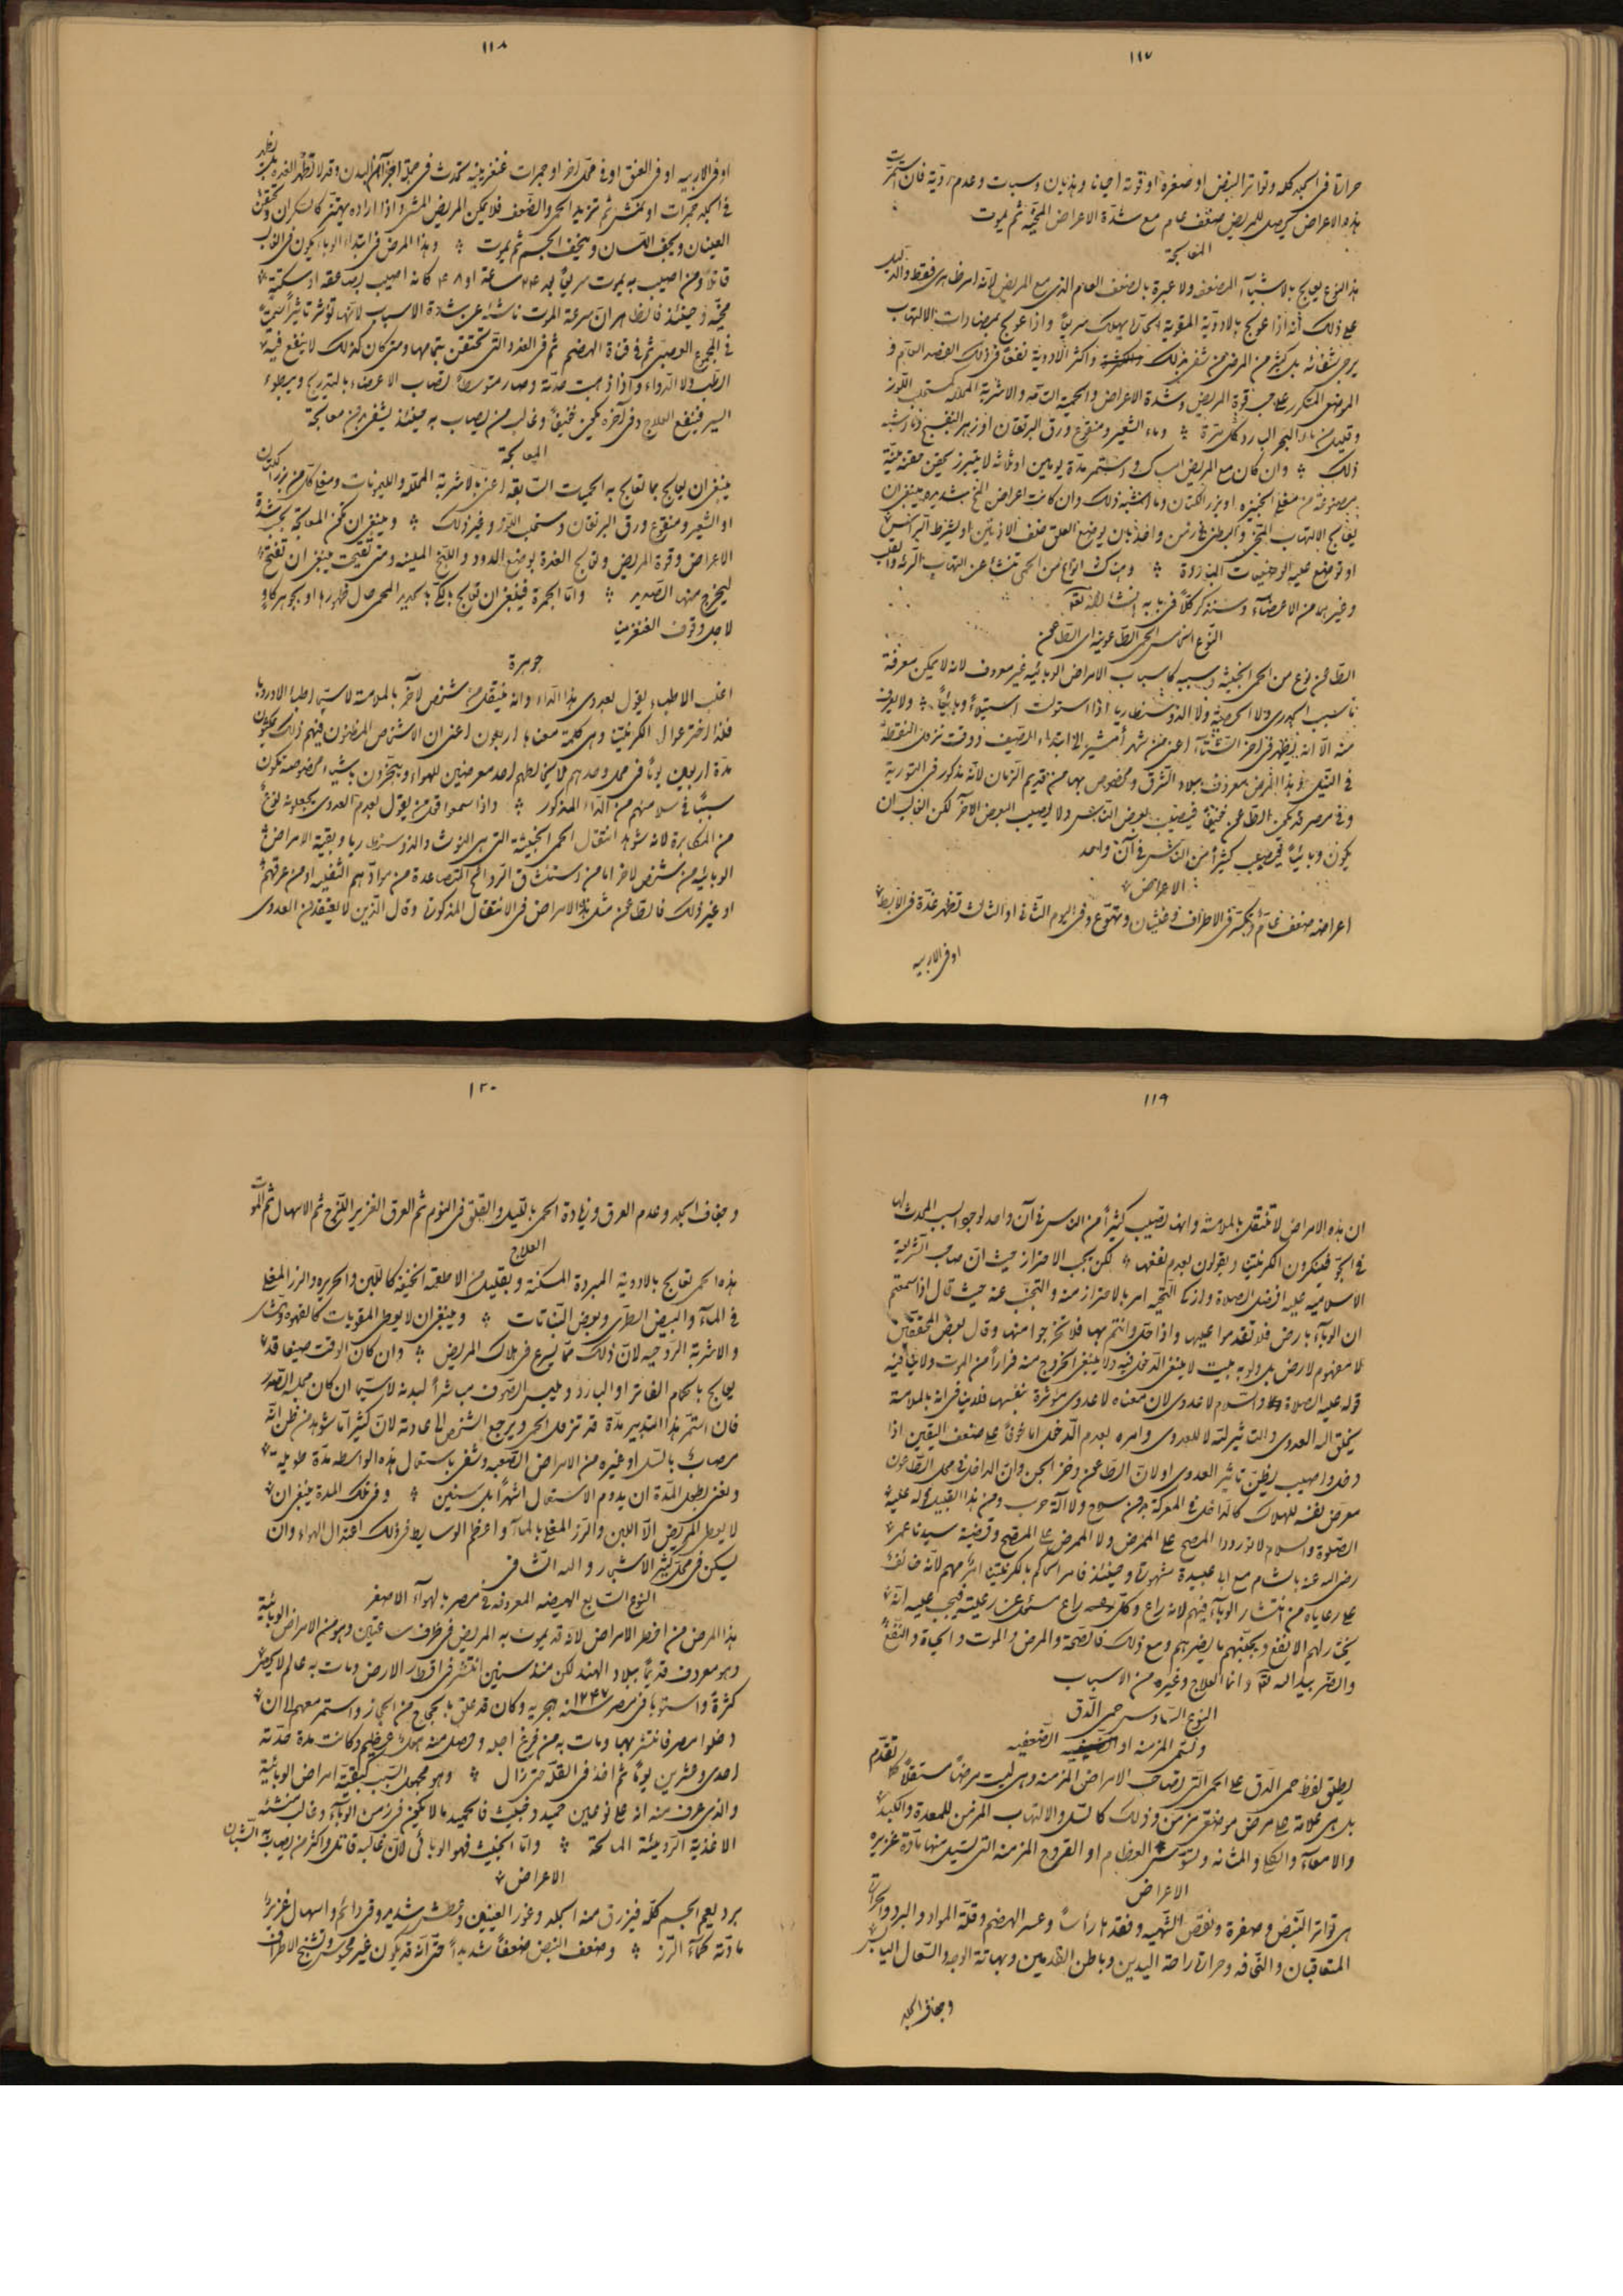 ١١٧
حرارة فى الجلد كله وتواتر النبض او صغره او قوته احيانا وهذيان وسبات وعدم روية فان استمرت
هذه الاعراض يحصل للمريض ضعف عام مع شدة الاعراض المخية ثم يموت
المعالجة
هذا النوع يعالج بالاشياء المضعفه ولا عبرة بالضعف العام الذى مع المريض لانه امر ظاهرى فقط والدليل
على ذلك أنه اذا عولج بالادوية المقوية الحارة يهلك سريعا واذا عولج بمضادات الالتهاب
يرجى شفائه بل كثير من المرضى من شفى بذلك واكثر الادوية نفعا فى ذلك الفصد العام و
الموضعى المتكرر على حسب قوة المريض وشدة الاعراض والحمية التامه والاشربة المحلله كمستحلب اللوز
وقليل من ماء البحر البارد كل مرة وماء الشعير ومنقوع ورق البرتقان او زهر البنفسج وما اشبه
ذلك وان كان مع المريض امساك واستمر مدة يومين او ثلاثه لا يتبرز يحقن بحقنة لينة
مصنوعة من مغلى الخبيزه او بزر الكتان وما اشبه ذلك وان كانت اعراض المخ شديده ينبغى ان
يعالج الالتهاب المخى والبطنى فى زمن واحد بان يوضع العلق خلف الاذنين او يشرط الرأس
او توضع عليه الوضعيات المبردة وهناك انواع من الحمى تنشأ عن التهاب الرئه والقلب
وغيرهما من الاعضاء وسنذكر كلا فى بابه ان شاء الله تعالى
النوع الخامس الحمى الطاعونية اى الطاعون
الطاعون نوع من الحمى الخبيثة وسببه كاسباب الامراض الوبائيه غير معروف لانه لا يمكن معرفة
ما سبب الجدرى ولا الحصبة ولا الدوسنطاريا اذا استولت استيلاء وبائيا ولا يعرف
منه الا انه يظهر فى اخر الشتاء اعنى من شهر أمشير الى ابتداء الصيف ووقت نزول النقطة
فى النيل وهذا المرض معروف ببلاد الشرق ومخصوص بها من قديم الزمان لانه مذكور فى التورية
وفى مصر قد يكون الطاعون خفيفا فيصيب بعض الناس ولا يصيب البعض الاخر لكن الغالب ان
يكون وبائيا فيصيب كثيرا من الناس فى آن واحد
الاعراض
اعراضه ضعف عام وتكسر فى الاطراف وغثيان وتهوع وفى اليوم الثانى او الثالث تظهر غدة فى الابط
او فى الاربيه
١١٨
او فى الاربيه او فى العنق او فى محل اخر او جمرات غنغرينية تحدث فى جملة اجزاء من البدن وقد لا تظهر الغده بل يظهر
فى الجلد جمرات او نمش ثم تزيد الحمى والضعف فلا يمكن المريض المشى واذا اراده يهتز كالسكران وتحتقن
العينان ويجف اللسان وينحف الجسم ثم يموت وهذا المرض فى ابتداء الوباء يكون فى الغالب
قاتلا ومن اصيب به يموت سريعا بعد ٢٤ ساعة او ٤٨ كانه اصيب بصاعقه او سكتة
مخية وحينئذ فالظاهر ان سرعة الموت ناشئة عن شدة الاسباب لانها تؤثر تاثيرا سميا
فى المجموع العصبى ثم فى قناة الهضم ثم فى الغدد التى تحتقن بتمامها ومتى كان كذلك لا ينفع فيه
الطب ولا الدواء واذا ذهبت حدته وصار متوسطا تصاب الاعضاء بالتدريج وببطوء
السير فينفع العلاج وفى آخره يكون خفيفا وغالب من يصاب به حينئذ يشفى بدون معالجة
المعالجة
ينبغى ان يعالج بما تعالج به الحميات السابقه اعنى بالاشربة المحللة والليمونات ومغلى كل من بزر الكتان
او الشعير ومنقوع ورق البرتقان ومستحلب اللوز وغير ذلك وينبغى ان تكون المعالجة بحسب شدة
الاعراض وقوة المريض وتعالج الغدة بوضع الدود واللبخ المليينه ومتى تقيحت ينبغى ان تفتح
ليخرج منها الصديد واما الجمرة فينبغى ان تعالج بالكى بالحديد المحمى حال ظهورها او بجوهر كاو
لاجل وقوف الغنغرينا
جوهرة
اغلب الاطباء يقول بعدوى هذا الداء وانه ينتقل من شخص لاخر بالملامسة لاسيما اطباء الاوروبا
فلذا اخترعوا الكرنتينا وهى كلمة معناها اربعون اعنى ان الاشخاص المظنون فيهم ذلك يمكثون
مدة اربعين يوما فى محل وحدهم لا يخالطهم احد معرضين للهواء ويتبخرون باشياء مخصوصة تكون
سببا فى سلامتهم من الداء المذكور واذا سمعوا قول من يقول بعدم العدوى يجعلونه نوعا
من المكابرة لانه شوهد انتقال الحمى الخبيثة التى هى النوشه والدوسنطاريا وبقية الامراض
الوبائيه من شخص لاخر اما من استنشاق الروائح المتصاعدة من موادهم الثفليه او من عرقهم
او غير ذلك فالطاعون مثل هذه الامراض فى الانتقال المذكور وقال الذين لا يعتقدون العدوى
١١٩
ان هذه الامراض لا تنتقل بالملامسة وانها تصيب كثيرا من الناس فى آن واحد لوجود السبب المحدث لها
فى الجو فينكرون الكرنتينا ويقولون بعدم نفعها لكن يجب الاحتراز حيث ان صاحب الشريعة
الاسلاميه عليه افضل الصلاة وازكى التحيه امر بالاحتراز منه والتجنب عنه حيث قال اذا سمعتم
ان الوباء بارض فلا تقدموا عليها واذا حل وانتم بها فلا تخرجوا منها وقال بعض المحققين
لا مفهوم لارض بل ولو به بيت لا ينبغى الدخول فيه ولا ينبغى الخروج منه فرارا من الموت ولا ينافيه
قوله عليه الصلاة والسلام لا عدوى لان معناه لا عدوى مؤثرة بنفسها فلا ينافى انه بالملامسة
يخلق الله العدوى والتاثير لله لا للعدوى وامره بعدم الدخول اما خوفا على ضعف اليقين اذا
دخل واصيب يظن تاثير العدوى او لان الطاعون وخز الجن وان الداخل فى محل الطاعون
معرض نفسه للهلاك كالداخل فى المعركة بدون سلاح ولا آلة حرب ومن هذا القبيل قوله عليه
الصلوة والسلام لا توردوا المصح على الممرض ولا الممرض على المصح وقضية سيدنا عمر
رضى الله عنه بالشام مع ابى عبيدة مشهورة وحينئذ فامر الحاكم بالكرنتينا امر مهم لانه خائف
على رعاياه من انتشار الوباء فيهم لانه راع وكل راع مسئول عن رعيته فيجب عليه انه
يختار لهم الانفع ويجنبهم ما يضرهم ومع ذلك فالصحة والمرض والموت والحياة والنفع
والضر بيد الله تعالى وانما العلاج وغيره من الاسباب
النوع السادس حمى الدق
وتسمى المزمنه او الضعفيه
يطلق لفظ حمى الدق على الحمى التى تصاحب الامراض المزمنه وهى ليست مرضا مستقلا كما تقدم
بل هى علامة على مرض موضعى مزمن وذلك كالسل والالتهاب المزمن للمعدة والكبد
والامعاء والكلى والمثانه وتسوس العظام او القروح المزمنه التى تسيل منها مادة غزيره
الاعراض
هى تواتر النبض وصغره ونقص الشهيه وفقدها رأسا وعسر الهضم وقلة المواد والبرد والحرارة
المتعاقبان والنحافه وحرارة راحة اليدين وباطن القدمين وبهاتة الوجه والسعال اليابس
وجفاف الجلد
١٢٠
وجفاف الجلد وعدم العرق وزيادة الحمى بالليل والقلق فى النوم ثم العرق الغزير اللزج ثم الاسهال ثم الموت
العلاج
هذه الحمى تعالج بالادوية المبردة المسكنة وبقليل من الاطعمة الخفيفه كاللبن والحريره والرز المغلى
فى الماء والبيض الطرى وبعض النباتات وينبغى ان لا يعطى المقويات كالقهوة والنشادر
والاشربة الروحيه لان ذلك مما يسرع فى هلاك المريض وان كان الوقت صيفا قد
يعالج بالحمام الفاتر او البارد ويلبس الصوف مباشرا لبدنه لاسيما ان كان محله الصدر
فان استمر هذا التدبير مدة قد تزول الحمى ويرجع الشخص الى عادته لان كثيرا ما شوهد من ظن انه
مصاب بالسل او غيره من الامراض الصعبه وشفى باستعمال هذه الواسطه مدة طويلة
ونعنى بطول المدة ان يدوم الاستعمال اشهرا بل سنين وفى تلك المدة ينبغى ان
لا يعطى المريض الا اللبن والرز المغلى بالماء واعظم الوسايط فى ذلك اعتدال الهواء وان
يسكن فى محل كثير الاشجار والله الشافى
النوع السابع الهيضه المعروفه فى مصر بالهواء الاصفر
هذا المرض من اخطر الامراض لانه قد يموت به المريض فى ظرف ساعتين وهو من الامراض الوبائية
وهو معروف قديما ببلاد الهند لكن منذ سنين انتشر فى اقطار الارض ومات به عالم لا يحصى
كثرة واستوبا فى مصر سنة ١٢٤٧ هجريه وكان قد علق بالحجاج من الحجاز واستمر معهم الى ان
دخلوا مصر فانتشر بها ومات به من فرغ اجله وحصل منه هلاك عظيم وكانت مدة حدته
احدى وعشرين يوما ثم اخذ فى القلة حتى زال وهو مجهول السبب كبقية امراض الوبائية
والذى عرف منه انه على نوعين حميد وخبيث فالحميد ما لا يكون فى زمن الوباء وغالب منشئه
الاغذية الرديئة المالحة واما الخبيث فهو الوبائى لان غالبه قاتل واكثر من يصاب به الشبان
الاعراض
برد يعم الجسم كله فيزرق منه الجلد وغور العينين وعطش شديد وقئ دائم واسهال غزير
مادته كماء الرز وضعف النبض ضعفا شديدا حتى انه قد يكون غير محسوس وتشنج الاطراف